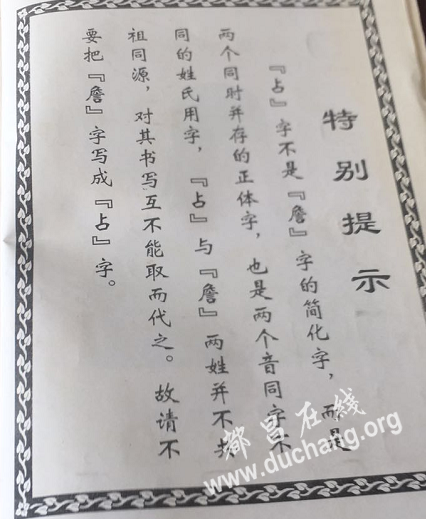 特别提示
『占』字不是『詹』字的简化字，而是
两个同时并存的正体字，也是两个音同字不
同的姓氏用字，『占』与『詹』两姓并不共
祖同源，对其书写互不能取而代之。故请不
要把『詹』字写成『占』字。
都昌在线
www.duchang.org